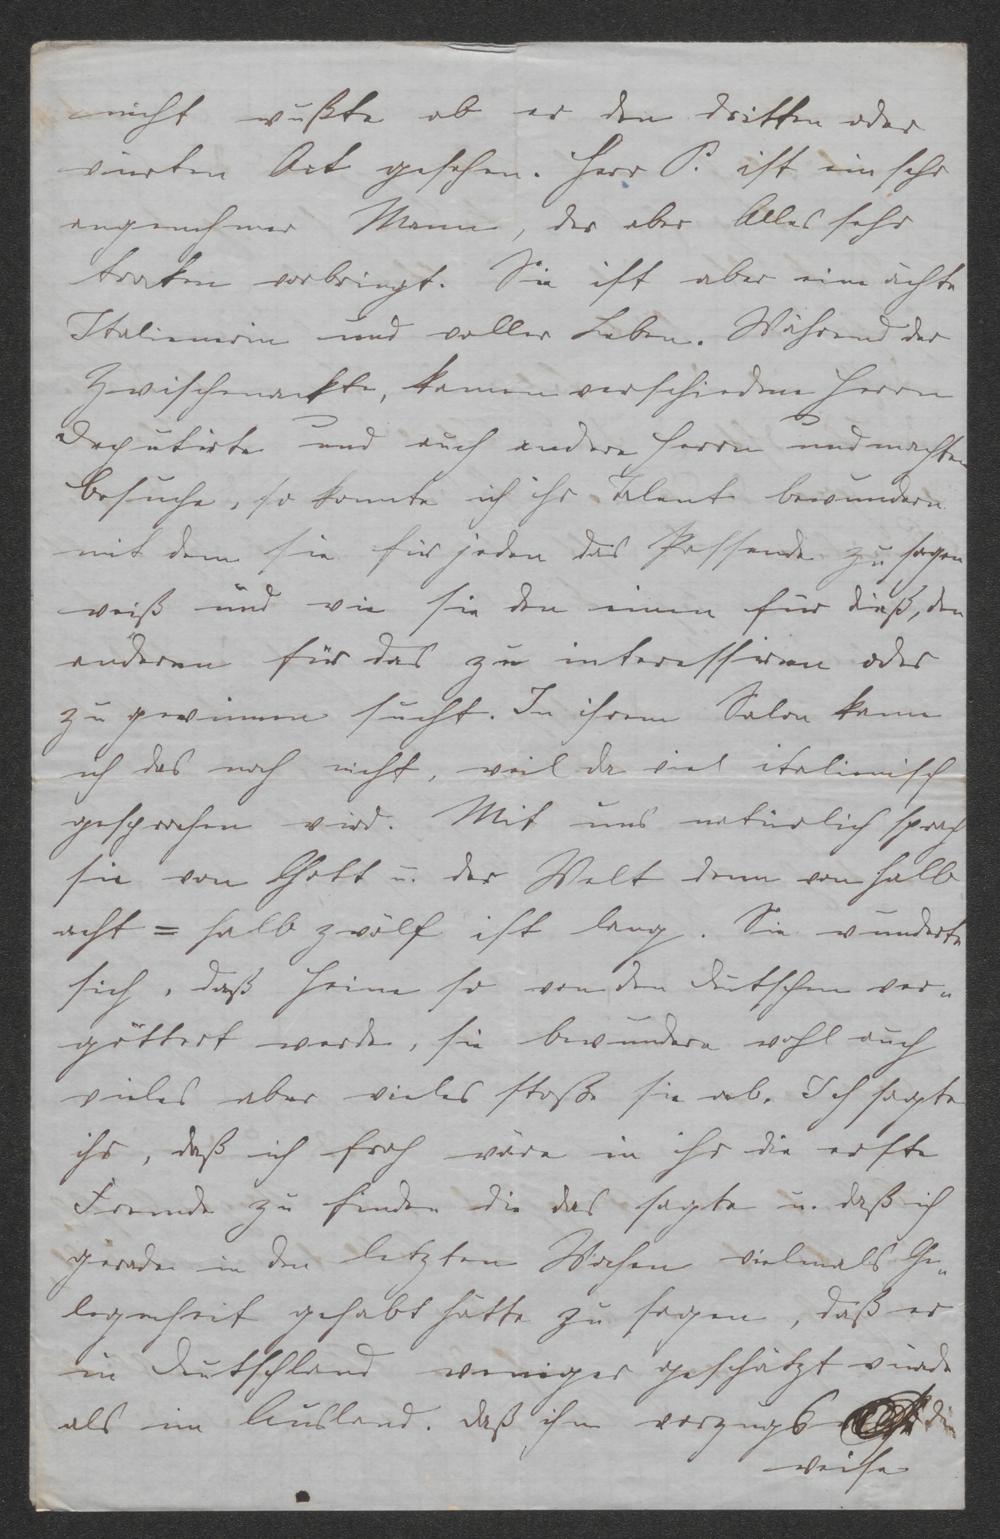 nicht wußte ob er den dritten oder
vierten Act gesehen. Herr P. ist ein sehr
angenehmer Mann, der aber Alles sehr
troken vorbringt. Sie ist aber eine ächte
Italienerin und voller Leben. Während der
Zwischenackte, kamen verschiedene Herrn
Deputirte und auch andere Herrn und machten
Besuche, so konnte ich ihr Talent bewundern
mit dem sie für jeden das Passende zu sagen
weiß und wie sie den einen für dieß, den
anderen für das zu interessiren oder
zu gewinnen sucht. In ihrem Salon kann
ich das noch nicht, weil da viel italienisch
gesprochen wird. Mit uns natürlich sprach
sie von Gott u. der Welt denn von halb
acht = halb zwölf ist lang. Sie wunderte
sich, daß Heine so von den Deutschen ver„
göttert werde, sie bewundere wohl auch
vieles aber vieles stoße sie ab. Ich sagte
ihr, daß ich froh wäre in ihr die erste
Fremde zu finden die das sagte u. daß ich
gerade in den letzten Wochen vielmals Ge„
legenheit gehabt hätte zu sagen, daß er
in Deutschland weniger geschätzt würde
als im Ausland. daß ihn vorzugs die
weise